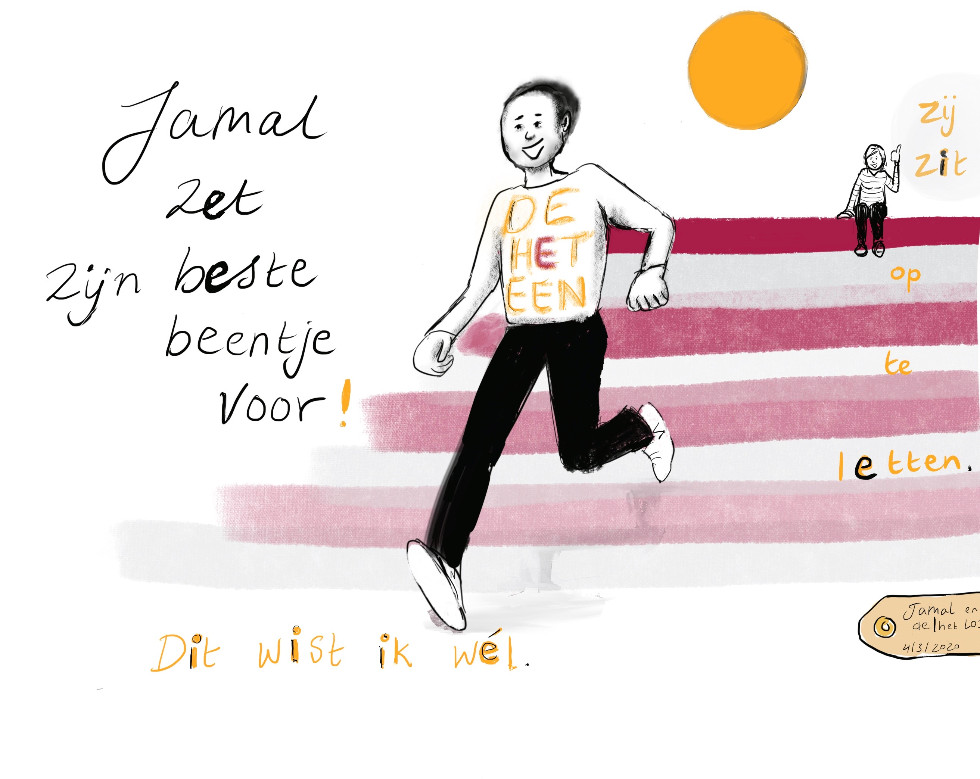 Jamal
zet
zijn beste
beentje
voor!
DE
HET
EEN
zij
zit
op
te
letten.
Dit wist ik wél.
Jamal en
de/het
4/3/2020